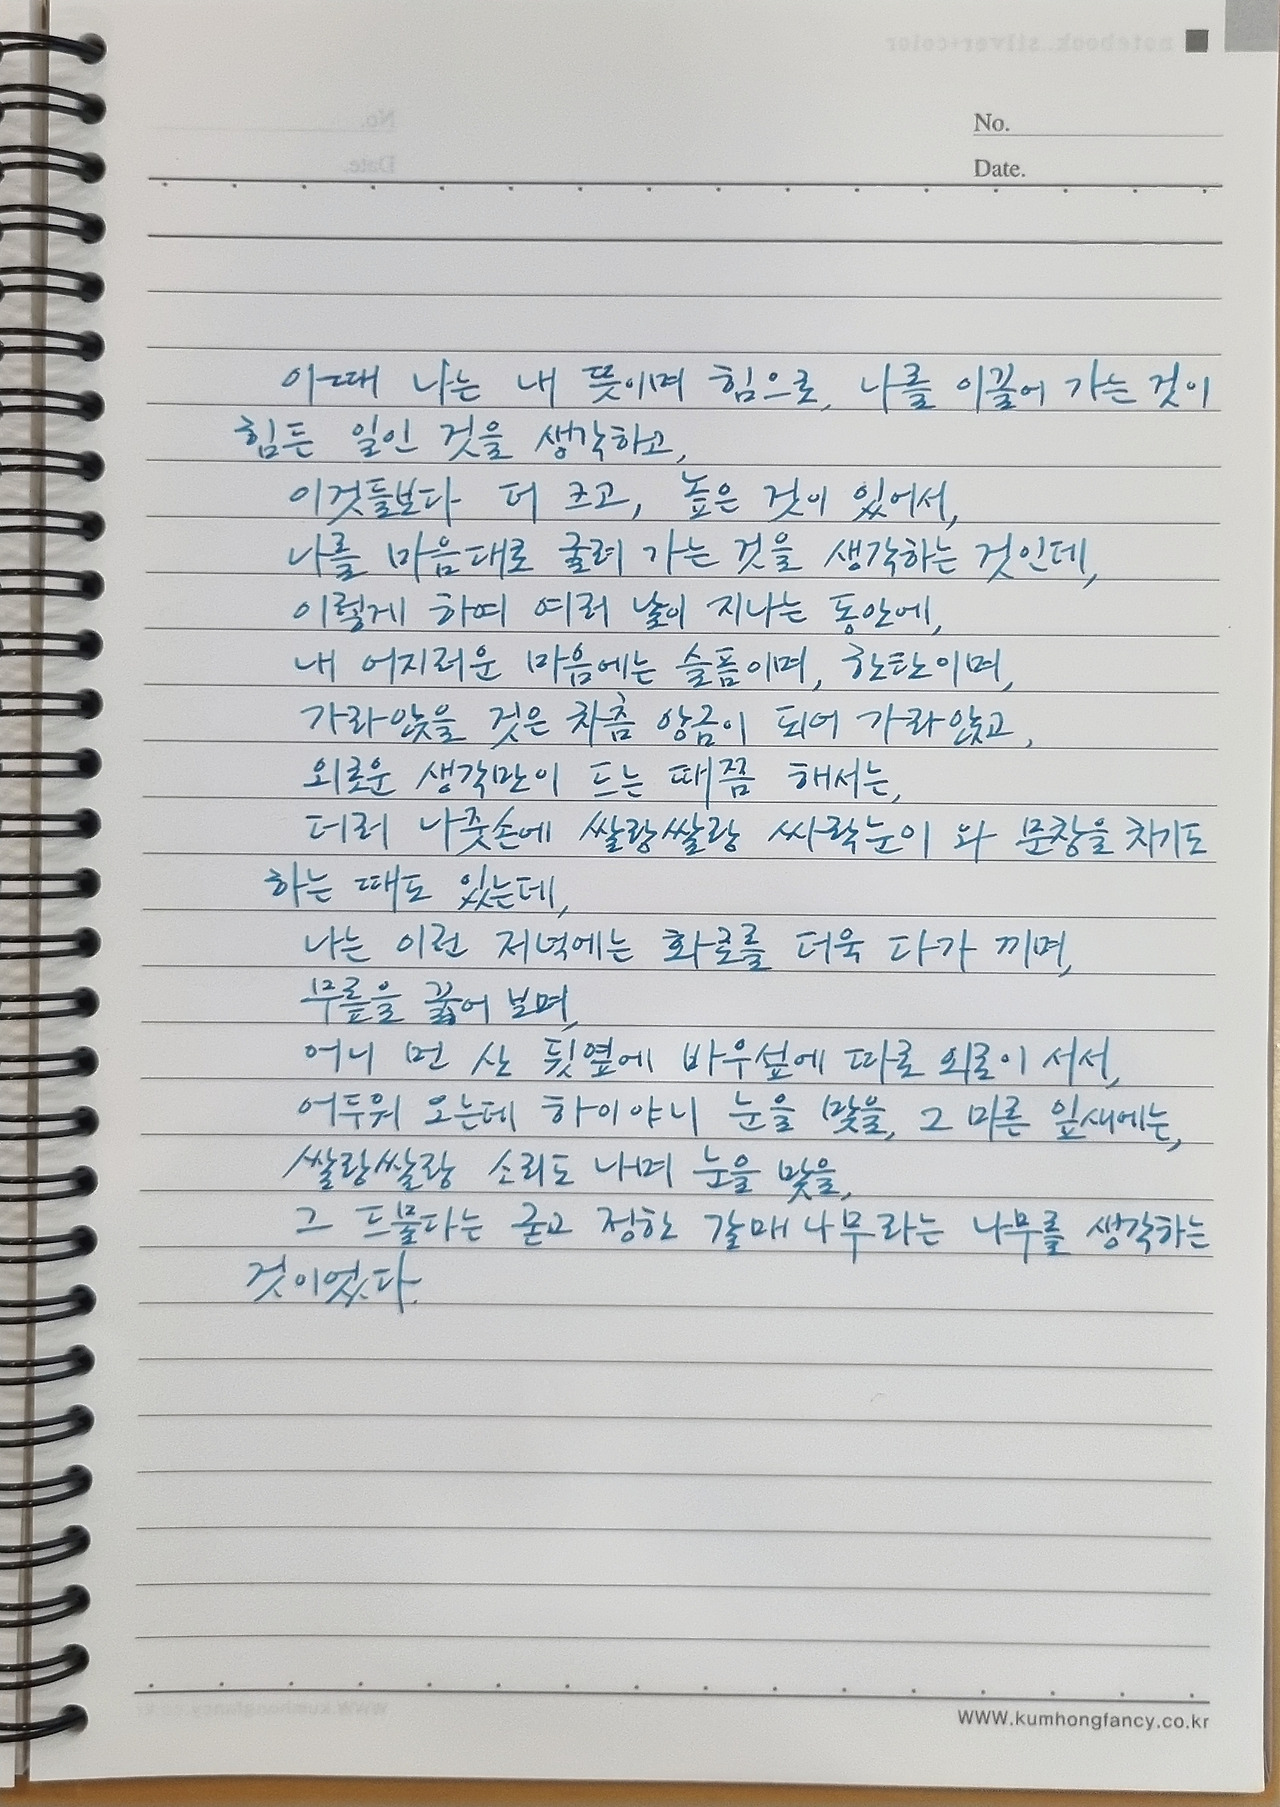 notebook. silver+color
No.
Date.
이때 나는 내 뜻이며 힘으로, 나를 이끌어 가는 것이
힘든 일인 것을 생각하고,
이것들보다 더 크고, 높은 것이 있어서,
나를 마음대로 굴려 가는 것을 생각하는 것인데,
이렇게 하여 여러 날이 지나는 동안에,
내 어지러운 마음에는 슬픔이며, 한탄이며,
가라앉을 것은 차츰 앙금이 되어 가라앉고,
외로운 생각만이 드는 때쯤 해서는,
더러 나줏손에 쌀랑쌀랑 싸락눈이 와 문창을 치기도
하는 때도 있는데,
나는 이런 저녁에는 화로를 더욱 다가 끼며,
무릎을 꿇어 보며,
어니 먼 산 뒷옆에 바우섶에 따로 외로이 서서,
어두워 오는데 하이야니 눈을 맞을, 그 마른 잎새에는,
쌀랑쌀랑 소리도 나며 눈을 맞을,
그 드물다는 굳고 정한 갈매나무라는 나무를 생각하는
것이었다.
www.kumhongfancy.co.kr